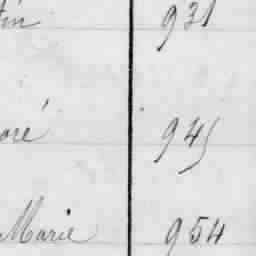 tin 931
oré 945
Marie 954